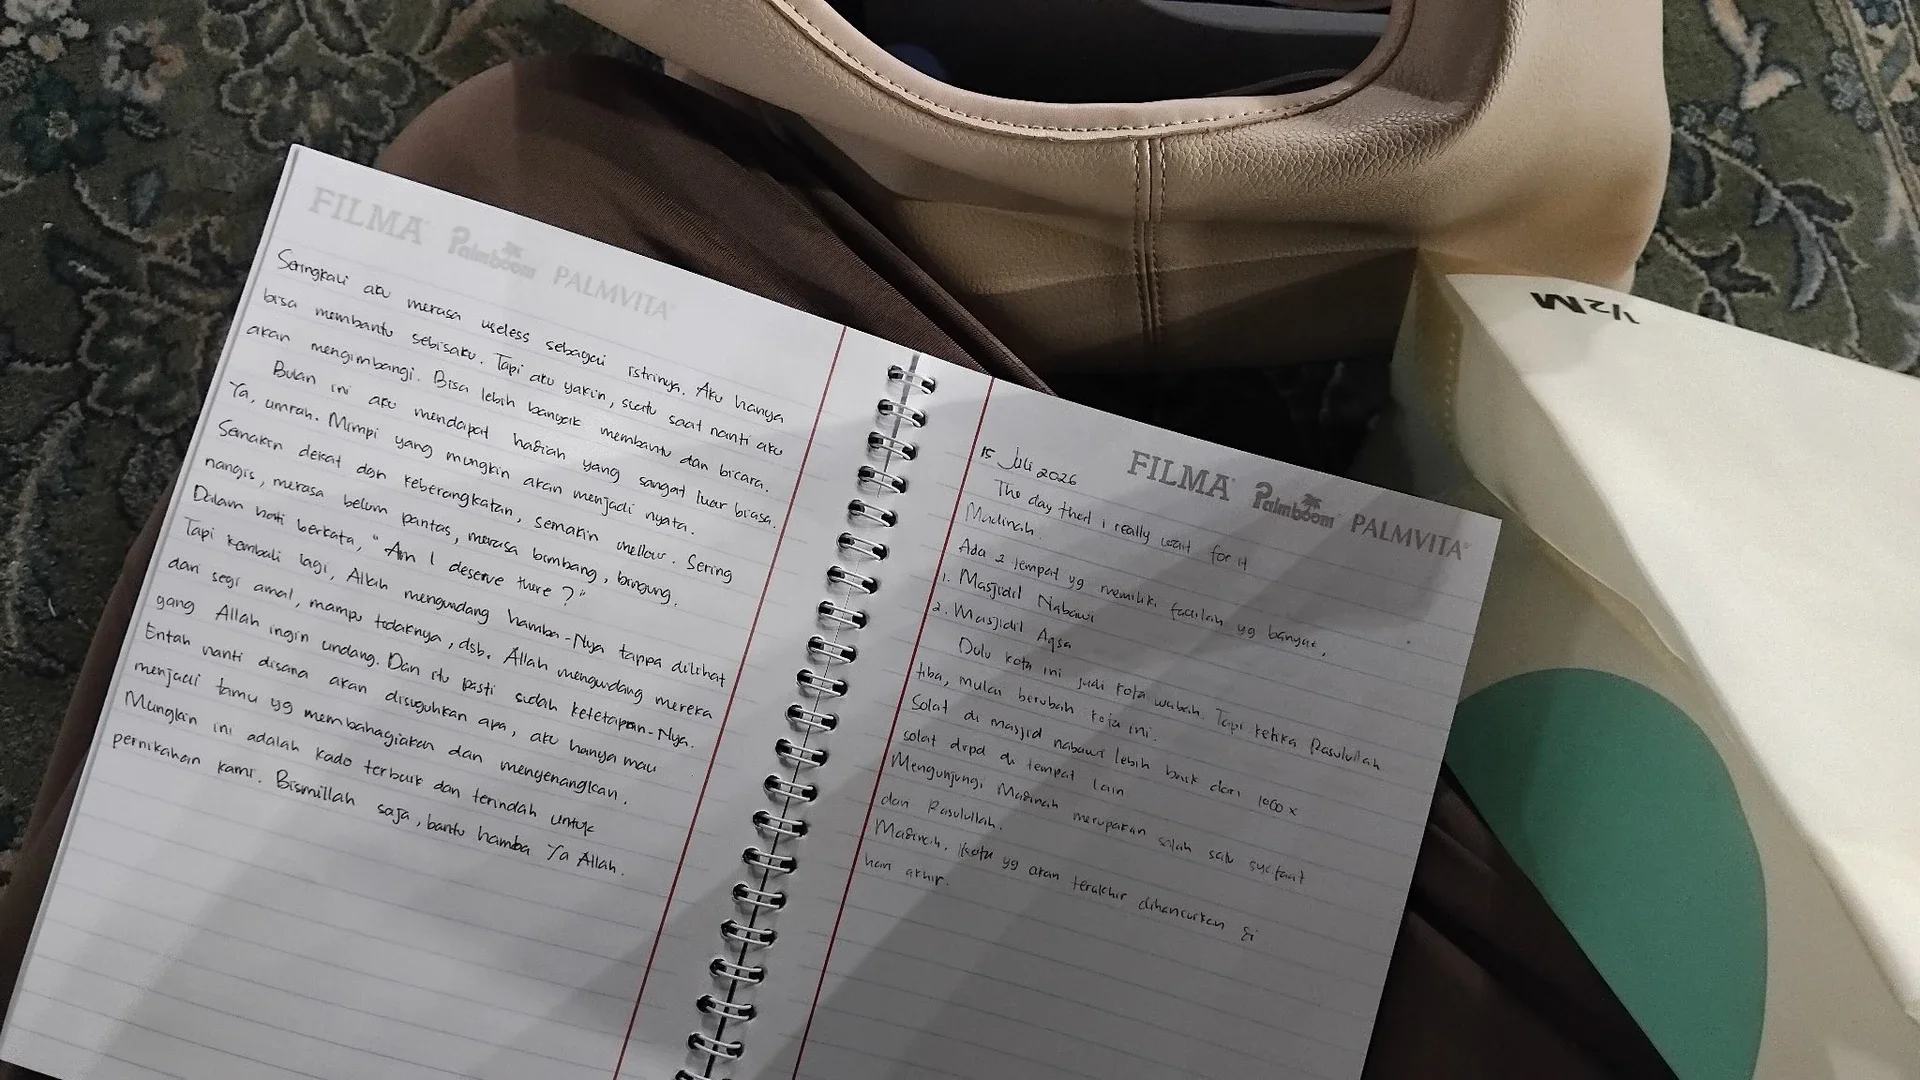 FILMA Palmboom PALMVITA
Seringkali aku merasa useless sebagai istrinya. Aku hanya
bisa membantu sebisaku. Tapi aku yakin, suatu saat nanti aku
akan mengimbangi. Bisa lebih banyak membantu dan bicara.
Bulan ini aku mendapat hadiah yang sangat luar biasa.
Ya, umrah. Mimpi yang mungkin akan menjadi nyata.
Semakin dekat dgn keberangkatan, semakin mellow. Sering
nangis, merasa belum pantas, merasa bimbang, bingung.
Dalam hati berkata, "Am I deserve there?"
Tapi kembali lagi, Allah mengundang hamba-Nya tanpa dilihat
dari segi amal, mampu tidaknya, dsb. Allah mengundang mereka
yang Allah ingin undang. Dan itu pasti sudah ketetapan-Nya.
Entah nanti disana akan disuguhkan apa, aku hanya mau
menjadi tamu yg membahagiakan dan menyenangkan.
Mungkin ini adalah kado terbaik dan terindah untuk
pernikahan kami. Bismillah saja, bantu hamba Ya Allah.
FILMA Palmboom PALMVITA
15 Juli 2026
The day that i really wait for it
Madinah.
Ada 2 tempat yg memiliki yg banyak,
1. Masjidil Nabawi
2. Masjidil Aqsa
Dulu kota ini jadi kota wabah. Tapi ketika Rasulullah
tiba, mulai berubah kota ini.
Solat di masjid nabawi lebih baik dari 1000 x
solat drpd di tempat lain
Mengunjungi Madinah merupakan salah satu syafaat
dari Rasulullah.
Madinah, kota yg akan terakhir dihancurkan di
hari akhir.
1/2M